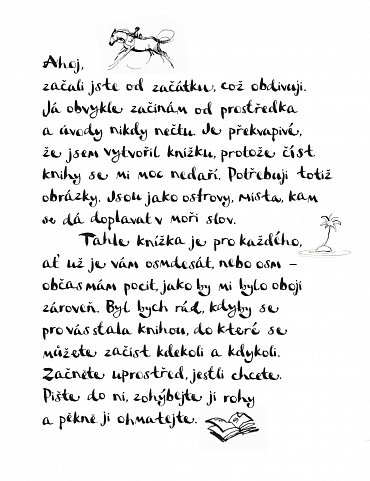 Ahoj,
začali jste od začátku, což obdivuji.
Já obvykle začínám od prostředka
a úvody nikdy nečtu. Je překvapivé,
že jsem vytvořil knížku, protože číst
knihy se mi moc nedaří. Potřebuji totiž
obrázky. Jsou jako ostrovy, místa, kam
se dá doplavat v moři slov.
Tahle knížka je pro každého,
ať už je vám osmdesát, nebo osm –
občas mám pocit, jako by mi bylo obojí
zároveň. Byl bych rád, kdyby se
pro vás stala knihou, do které se
můžete začíst kdekoli a kdykoli.
Začněte uprostřed, jestli chcete.
Pište do ní, zohýbejte jí rohy
a pěkně ji ohmatejte.